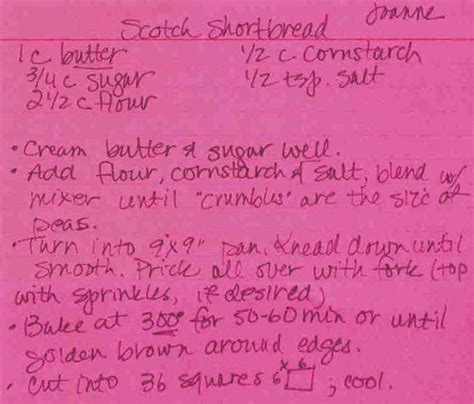 Joanne
Scotch Shortbread
1 c butter 1/2 c. Cornstarch
3/4 c sugar 1/2 tsp. salt
2 1/2 c flour
• Cream butter & sugar well.
• Add flour, cornstarch & salt, blend w/
mixer until "crumbles" are the size of
peas.
• Turn into 9"x9" pan. Knead down until
smooth. Prick all over with fork (top
with sprinkles, if desired)
• Bake at 300° for 50-60 min or until
golden brown around edges.
• Cut into 36 squares 6 x 6 ; cool.